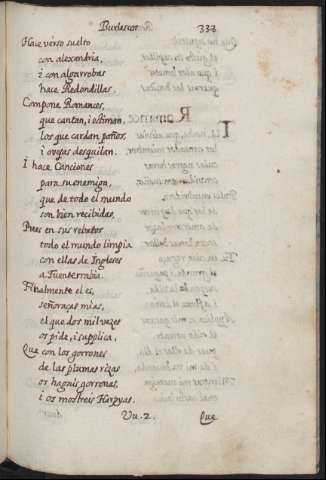 Burlescos 333
Hace verso suelto
con alexandria,
i con algarrobas
hace Redondillas.
Compone Romances,
que cantan, i estiman,
los que cardan paños,
i ovejas desquilan.
I hace Canciones
para su enemiga,
que de todo el mundo
son bien recibidas,
Pues en sus rebatos
todo el mundo limpia
con ellas de Ingleses
a Fuenterrabia.
Finalmente el es,
señoraças mias,
el que dos mil vezes
os pide, i supplica,
Que con los gorrones
de las plumas rizas
os hagais gorronas,
i os mostreis Harpyas.
Vu. 2. Que
Romance